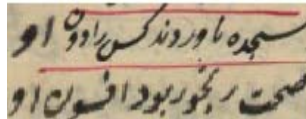 سجده ناوردند کس را دون او
صحت رنجور بود افسون او